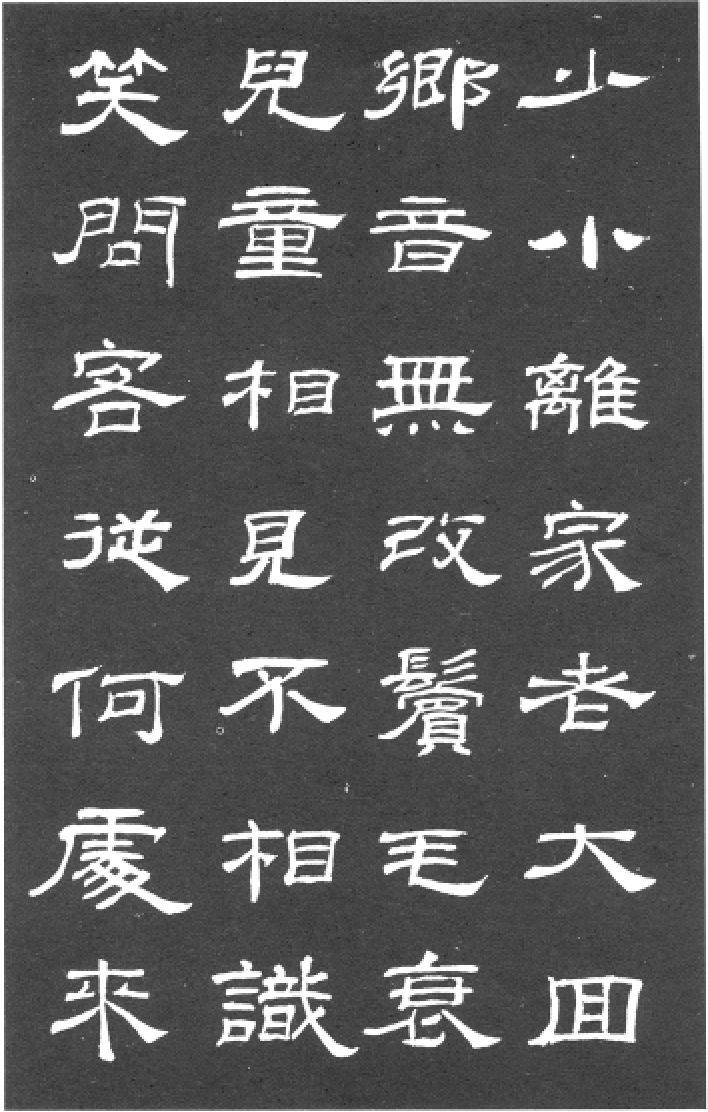 少小離家老大囬
鄉音無改鬢毛衰
兒童相見不相識
笑問客從何處來